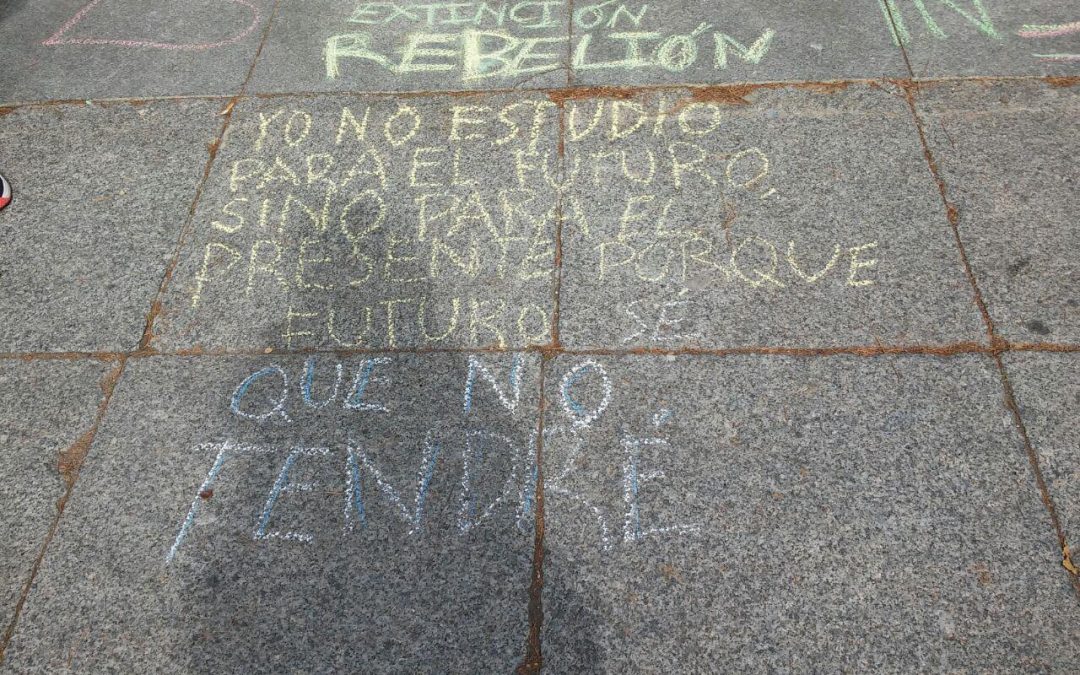 EXTINCIÓN
REBELIÓN
YO NO ESTUDIO
PARA EL FUTURO,
SINO PARA EL
PRESENTE PORQUE
FUTURO SÉ
QUE NO
TENDRÉ